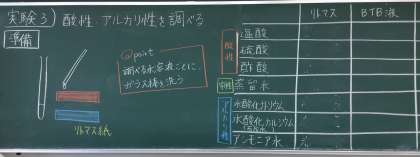 実験3) 酸性、アルカリ性を調べる
準備
リトマス紙
point
調べる水溶液ごとに、
ガラス棒を洗う
リトマス BTB液
酸性
塩酸
硫酸
酢酸
中性 蒸留水
アルカリ性
水酸化ナトリウム
水酸化カルシウム
(石灰水)
アンモニア水